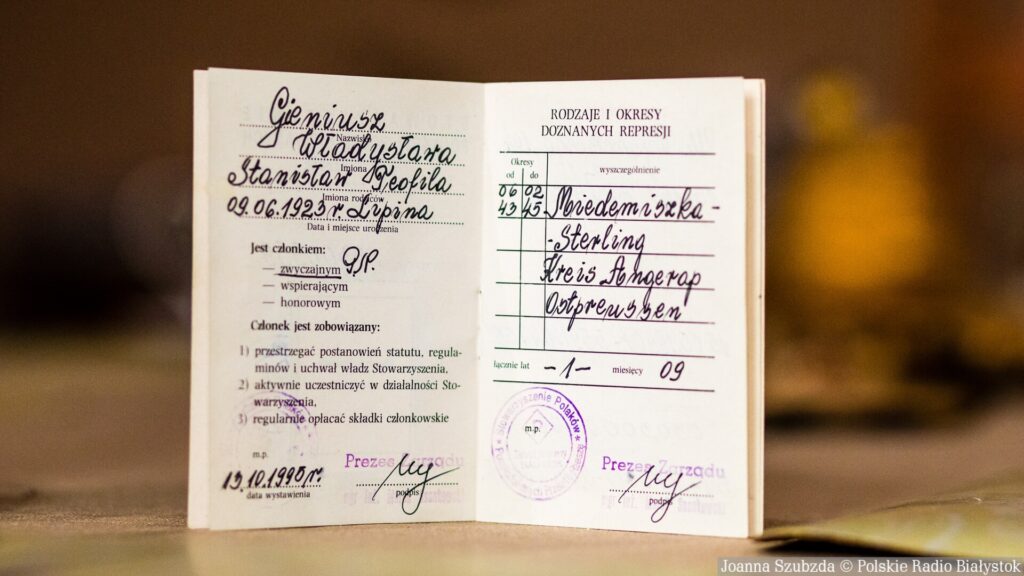 Gieniusz
Nazwisko
Władysława
Imiona
Stanisław Teofila
Imiona rodziców
09.06.1923r. Lipina
Data i miejsce urodzenia
Jest członkiem:
— zwyczajnym P.P.
— wspierającym
— honorowym
Członek jest zobowiązany:
1) przestrzegać postanowień statutu, regula-
minów i uchwał władz Stowarzyszenia.
2) aktywnie uczestniczyć w działalności Sto-
warzyszenia,
3) regularnie opłacać składki członkowskie
m.p.
Prezes Zarządu
13.10.1995r.
data wystawienia
podpis
RODZAJE I OKRESY
DOZNANYCH REPRESJI
Okresy
od do
wyszczególnienie
06 02
43 45 Miedemiszka-
-Sterling
Kreis Angerap
Ostpreussen
łącznie lat -1- miesięcy 09
Stowarzyszenie Polaków
m.p.
Prezes Zarządu
podpis
Joanna Szubzda © Polskie Radio Białystok